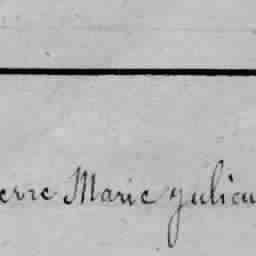 erre Marie Julien